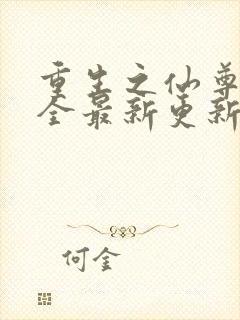 重生之仙尊
全最新更新
何金